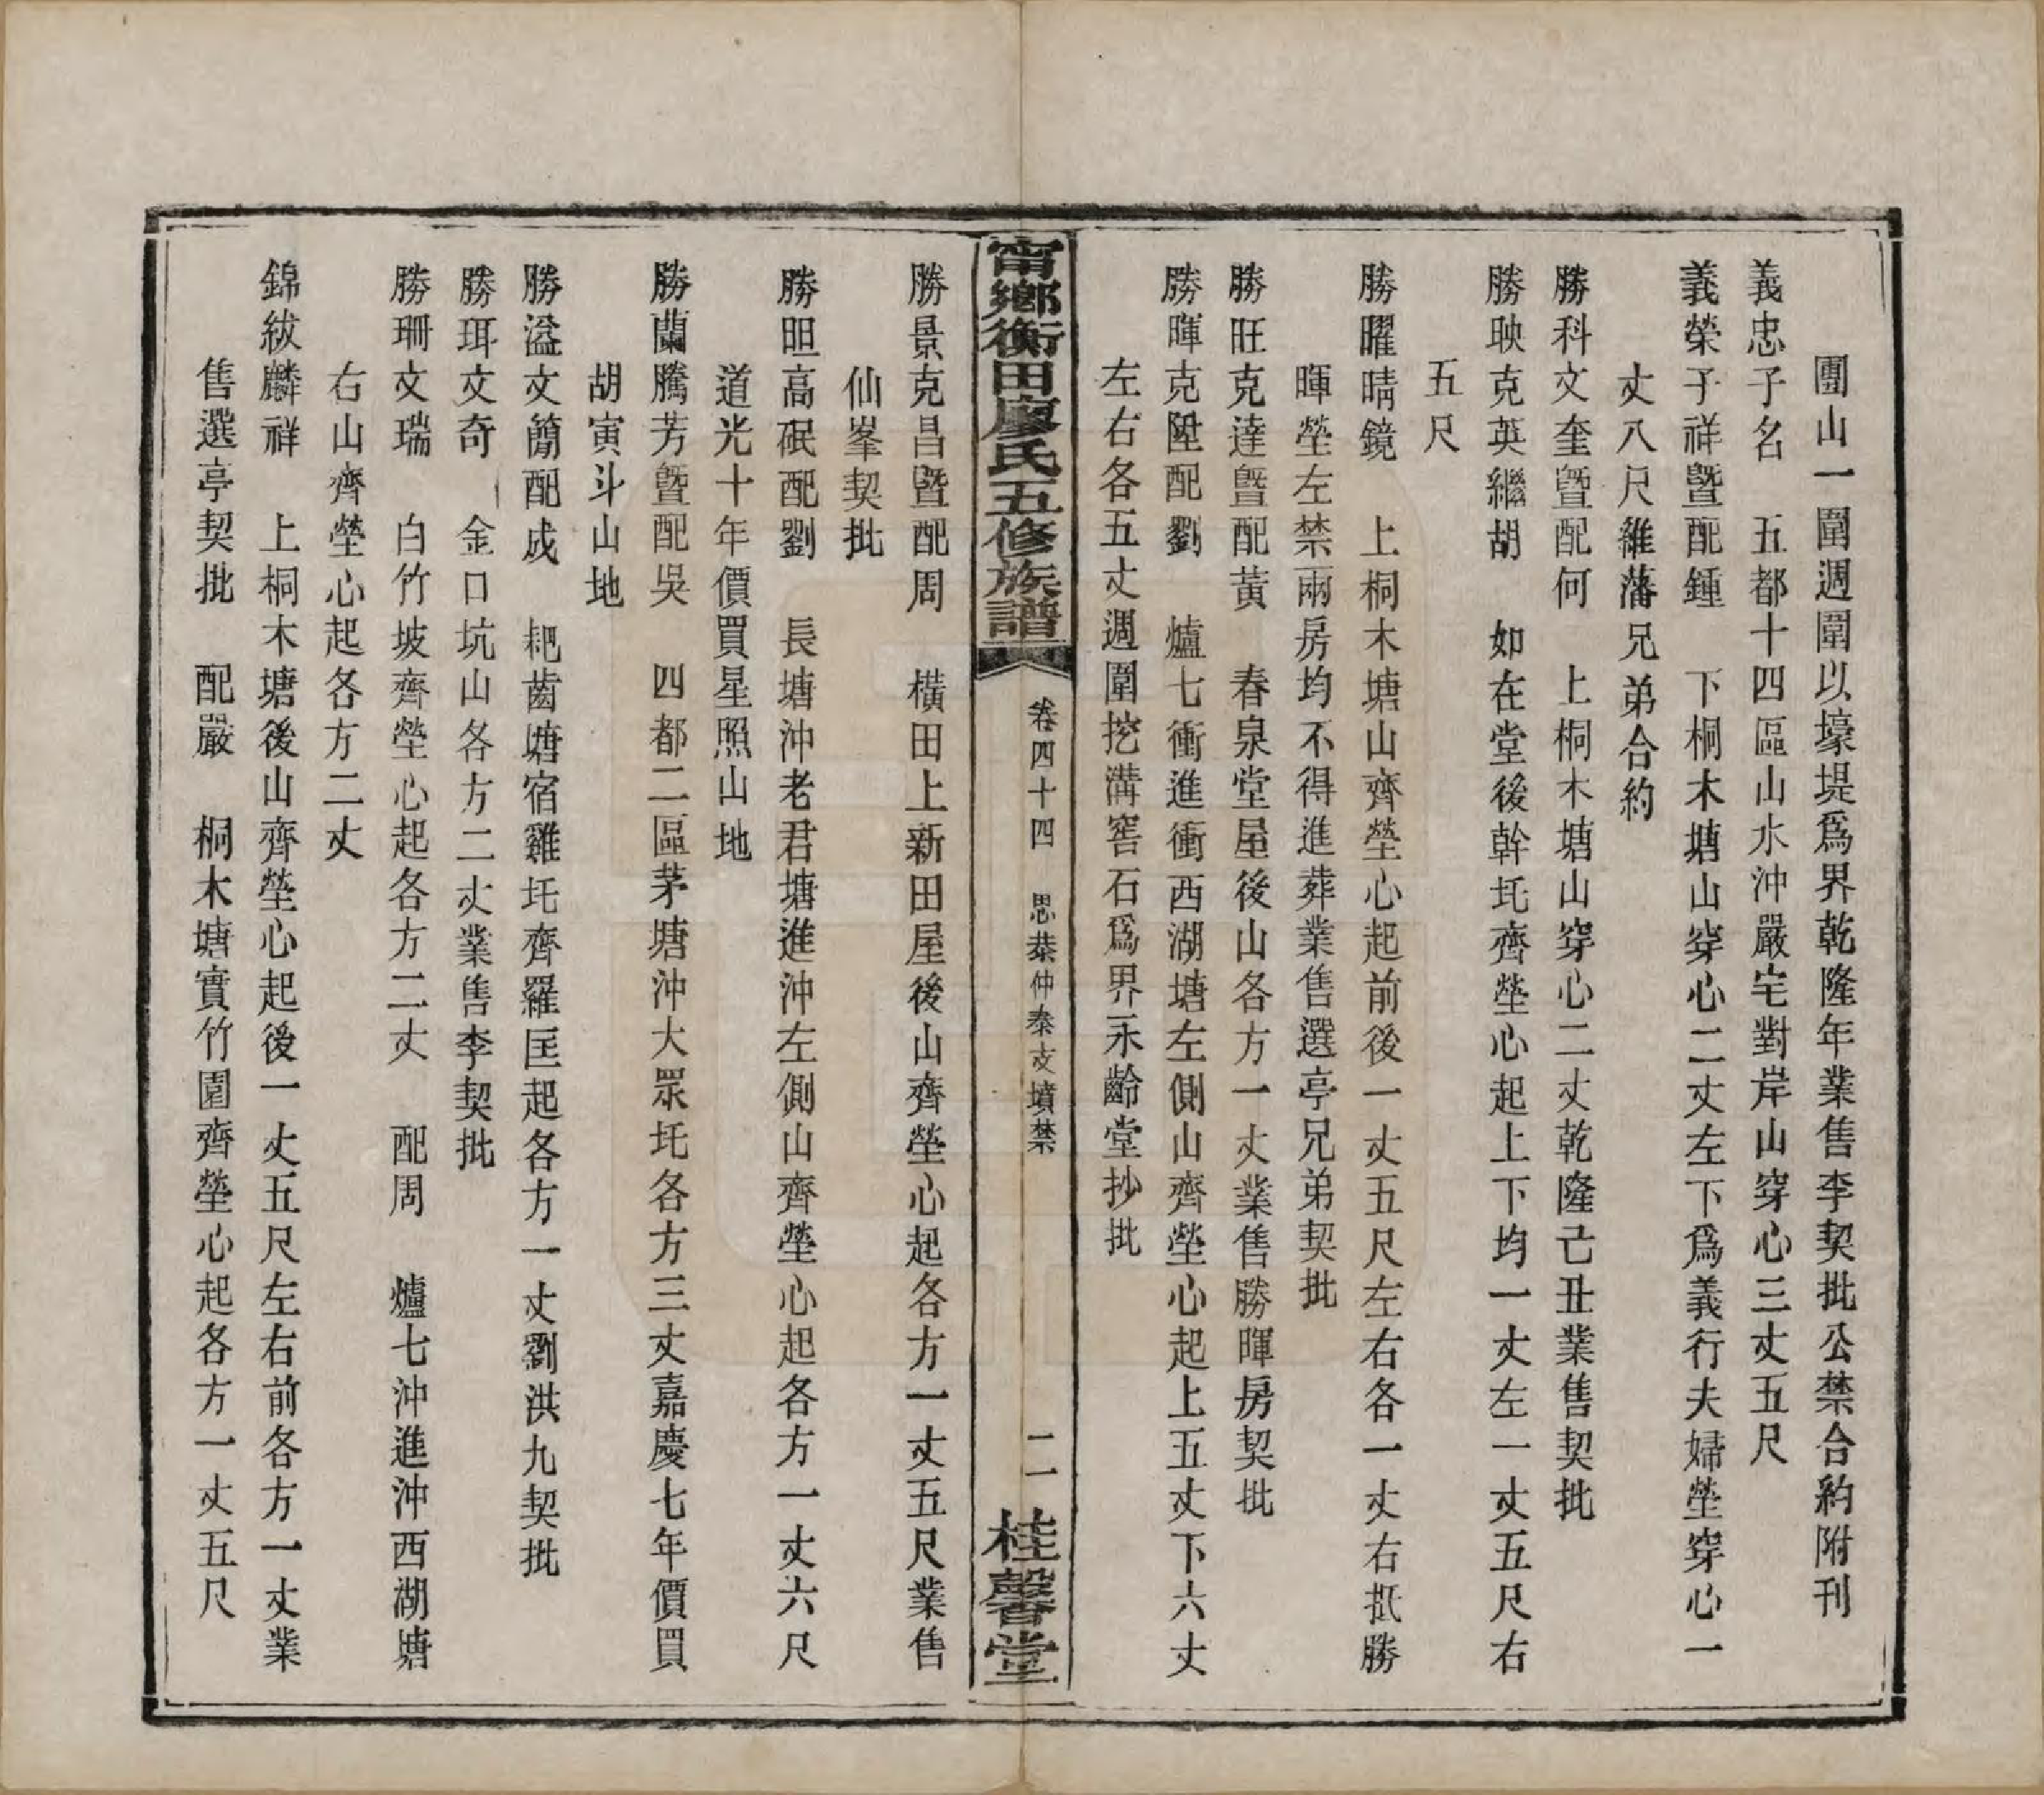 團山一圍週圍以壕堤爲界乾隆年業售李契批公禁合約附刊
義忠子名　五都十四區山水沖嚴宅對岸山穿心三丈五尺
義榮子祥暨配鍾　下桐木塘山穿心二丈左下爲義行夫婦塋穿心一
丈八尺維藩兄弟合約
勝科文奎暨配何　上桐木塘山穿心二丈乾隆己丑業售契批
勝映克英繼胡　如在堂後幹圫齊塋心起上下均一丈左一丈五尺右
五尺
勝曜晴鏡　上桐木塘山齊塋心起前後一丈五尺左右各一丈右抵勝
暉塋左禁兩房均不得進葬業售選亭兄弟契批
勝旺克達暨配黃　春泉堂屋後山各方一丈業售勝暉房契批
勝暉克陞配劉　爐七衝進衝西湖塘左側山齊塋心起上五丈下六丈
左右各五丈週圍挖溝窖石爲界永齡堂抄批
甯鄉衡田廖氏五修族譜
卷四十四　思恭仲泰支墳禁
二一
桂馨堂
勝景克昌暨配周　橫田上新田屋後山齊塋心起各方一丈五尺業售
仙峯契批
勝昍高砇配劉　長塘沖老君塘進沖左側山齊塋心起各方一丈六尺
道光十年價買星照山地
勝蘭騰芳暨配吳　四都二區茅塘沖大眾圫各方三丈嘉慶七年價買
胡寅斗山地
勝溢文簡配成　耙齒塘宿雞圫齊羅匡起各方一丈劉洪九契批
勝珥文奇　金口坑山各方二丈業售李契批
勝珊文瑞　白竹坡齊塋心起各方二丈　配周　爐七沖進沖西湖塘
右山齊塋心起各方二丈
錦紱麟祥　上桐木塘後山齊塋心起後一丈五尺左右前各方一丈業
售選亭契批　配嚴　桐木塘實竹園齊塋心起各方一丈五尺